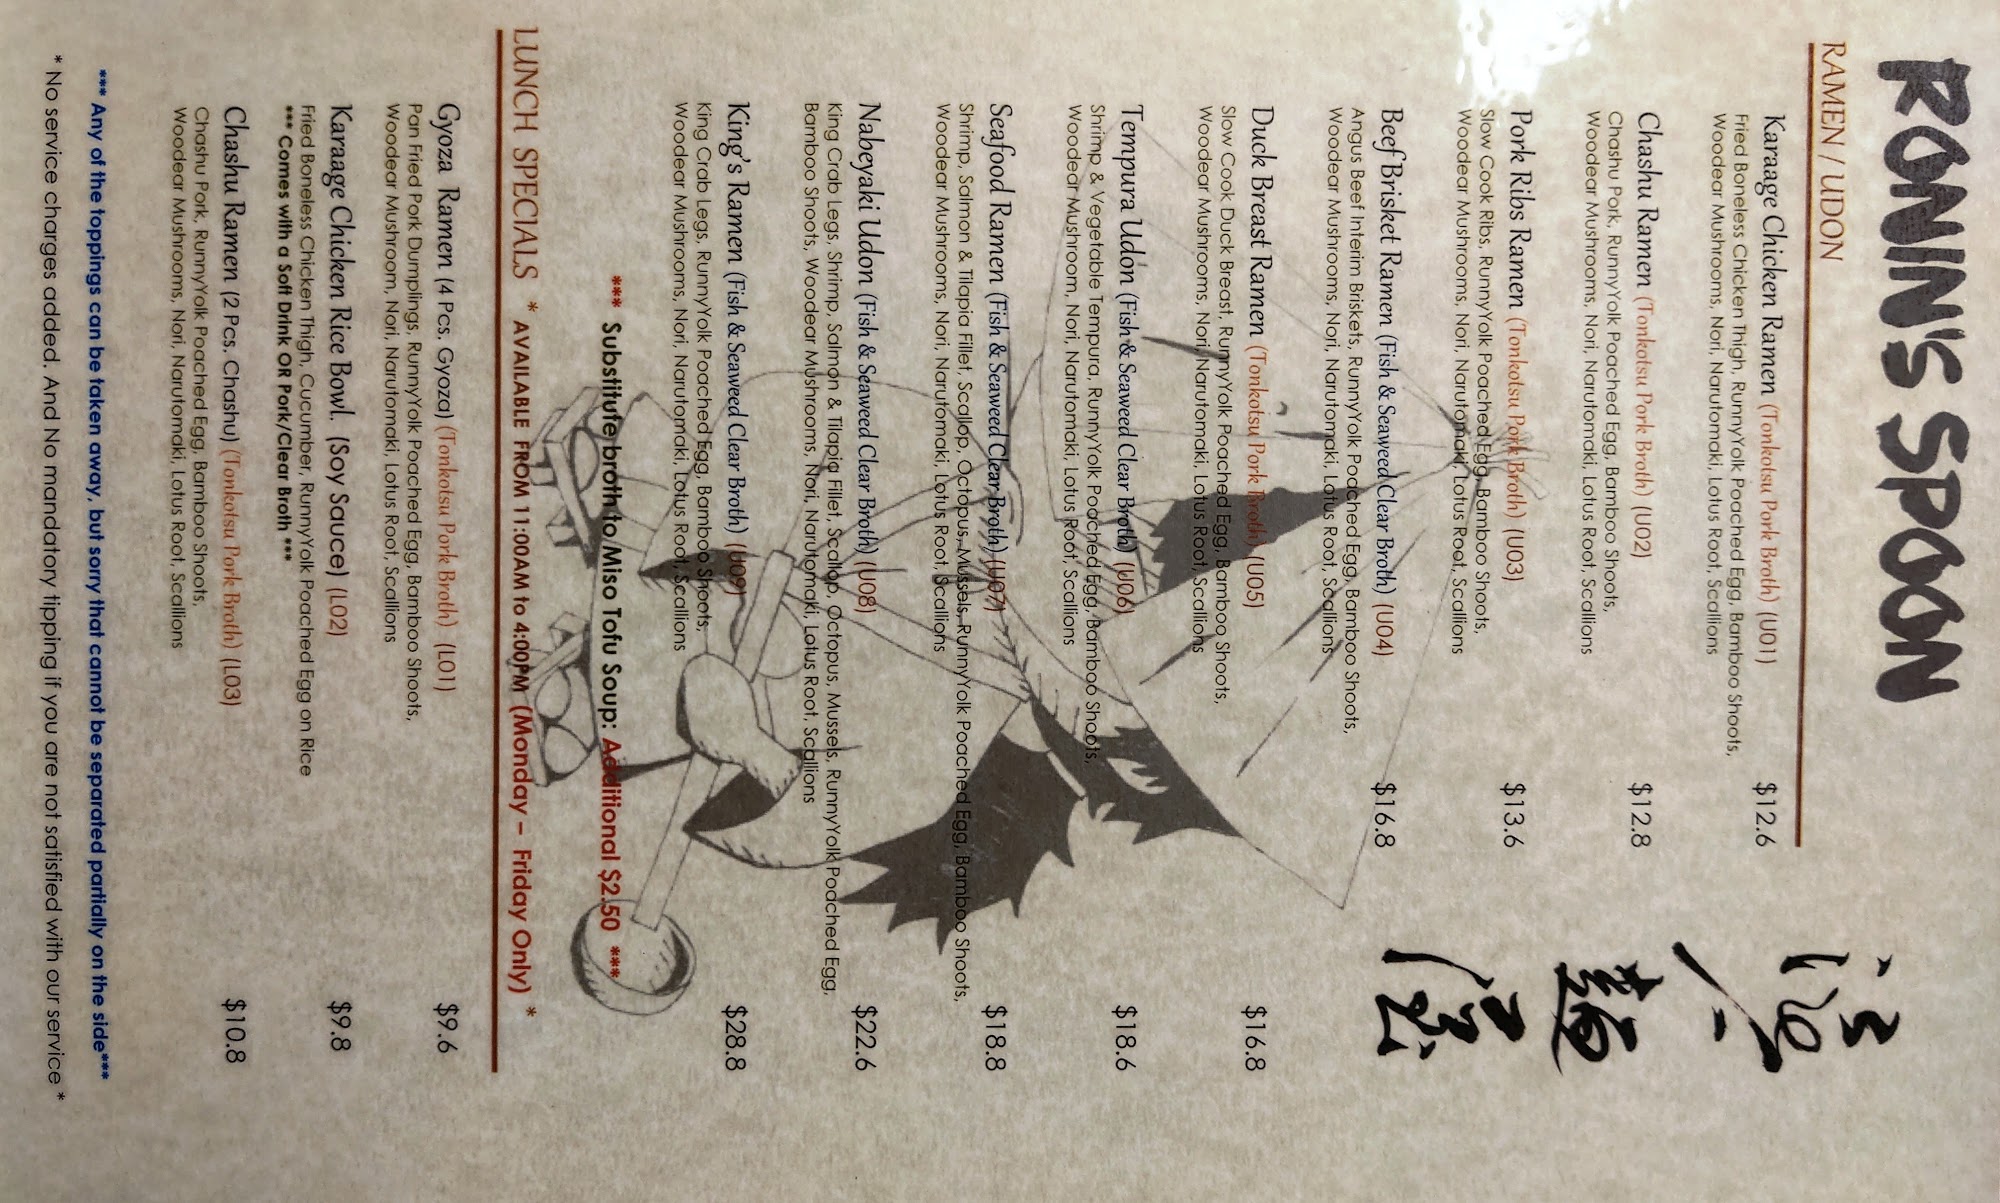 RONIN'S SPOON
RAMEN / UDON
Karaage Chicken Ramen (Tonkotsu Pork Broth) (U01) $12.6
Fried Boneless Chicken Thigh, RunnyYolk Poached Egg, Bamboo Shoots,
Woodear Mushrooms, Nori, Narutomaki, Lotus Root, Scallions
Chashu Ramen (Tonkotsu Pork Broth) (U02) $12.8
Chashu Pork, RunnyYolk Poached Egg, Bamboo Shoots,
Woodear Mushrooms, Nori, Narutomaki, Lotus Root, Scallions
Pork Ribs Ramen (Tonkotsu Pork Broth) (U03) $13.6
Slow Cook Ribs, RunnyYolk Poached Egg, Bamboo Shoots,
Woodear Mushrooms, Nori, Narutomaki, Lotus Root, Scallions
Beef Brisket Ramen (Fish & Seaweed Clear Broth) (U04) $16.8
Angus Beef Interim Briskets, RunnyYolk Poached Egg, Bamboo Shoots,
Woodear Mushrooms, Nori, Narutomaki, Lotus Root, Scallions
Duck Breast Ramen (Tonkotsu Pork Broth) (U05) $16.8
Slow Cook Duck Breast, RunnyYolk Poached Egg, Bamboo Shoots,
Woodear Mushrooms, Nori, Narutomaki, Lotus Root, Scallions
Tempura Udon (Fish & Seaweed Clear Broth) (U06) $18.6
Shrimp & Vegetable Tempura, RunnyYolk Poached Egg, Bamboo Shoots,
Woodear Mushroom, Nori, Narutomaki, Lotus Root, Scallions
Seafood Ramen (Fish & Seaweed Clear Broth) (U07) $18.8
Shrimp, Salmon & Tilapia Fillet, Scallop, Octopus, Mussels, RunnyYolk Poached Egg, Bamboo Shoots,
Woodear Mushrooms, Nori, Narutomaki, Lotus Root, Scallions
Nabeyaki Udon (Fish & Seaweed Clear Broth) (U08) $22.6
King Crab Legs, Shrimp, Salmon & Tilapia Fillet, Scallop, Octopus, Mussels, RunnyYolk Poached Egg,
Bamboo Shoots, Woodear Mushrooms, Nori, Narutomaki, Lotus Root, Scallions
King's Ramen (Fish & Seaweed Clear Broth) (U09) $28.8
King Crab Legs, RunnyYolk Poached Egg, Bamboo Shoots,
Woodear Mushrooms, Nori, Narutomaki, Lotus Root, Scallions
*** Substitute broth to Miso Tofu Soup: Additional $2.50 ***
LUNCH SPECIALS * AVAILABLE FROM 11:00AM to 4:00PM (Monday – Friday Only) *
Gyoza Ramen (4 Pcs. Gyoza) (Tonkotsu Pork Broth) (L01) $9.6
Pan Fried Pork Dumplings, RunnyYolk Poached Egg, Bamboo Shoots,
Woodear Mushroom, Nori, Narutomaki, Lotus Root, Scallions
Karaage Chicken Rice Bowl. (Soy Sauce) (L02) $9.8
Fried Boneless Chicken Thigh, Cucumber, RunnyYolk Poached Egg on Rice
*** Comes with a Soft Drink OR Pork/Clear Broth ***
Chashu Ramen (2 Pcs. Chashu) (Tonkotsu Pork Broth) (L03) $10.8
Chashu Pork, RunnyYolk Poached Egg, Bamboo Shoots,
Woodear Mushrooms, Nori, Narutomaki, Lotus Root, Scallions
*** Any of the toppings can be taken away, but sorry that cannot be separated partially on the side***
* No service charges added. And No mandatory tipping if you are not satisfied with our service *